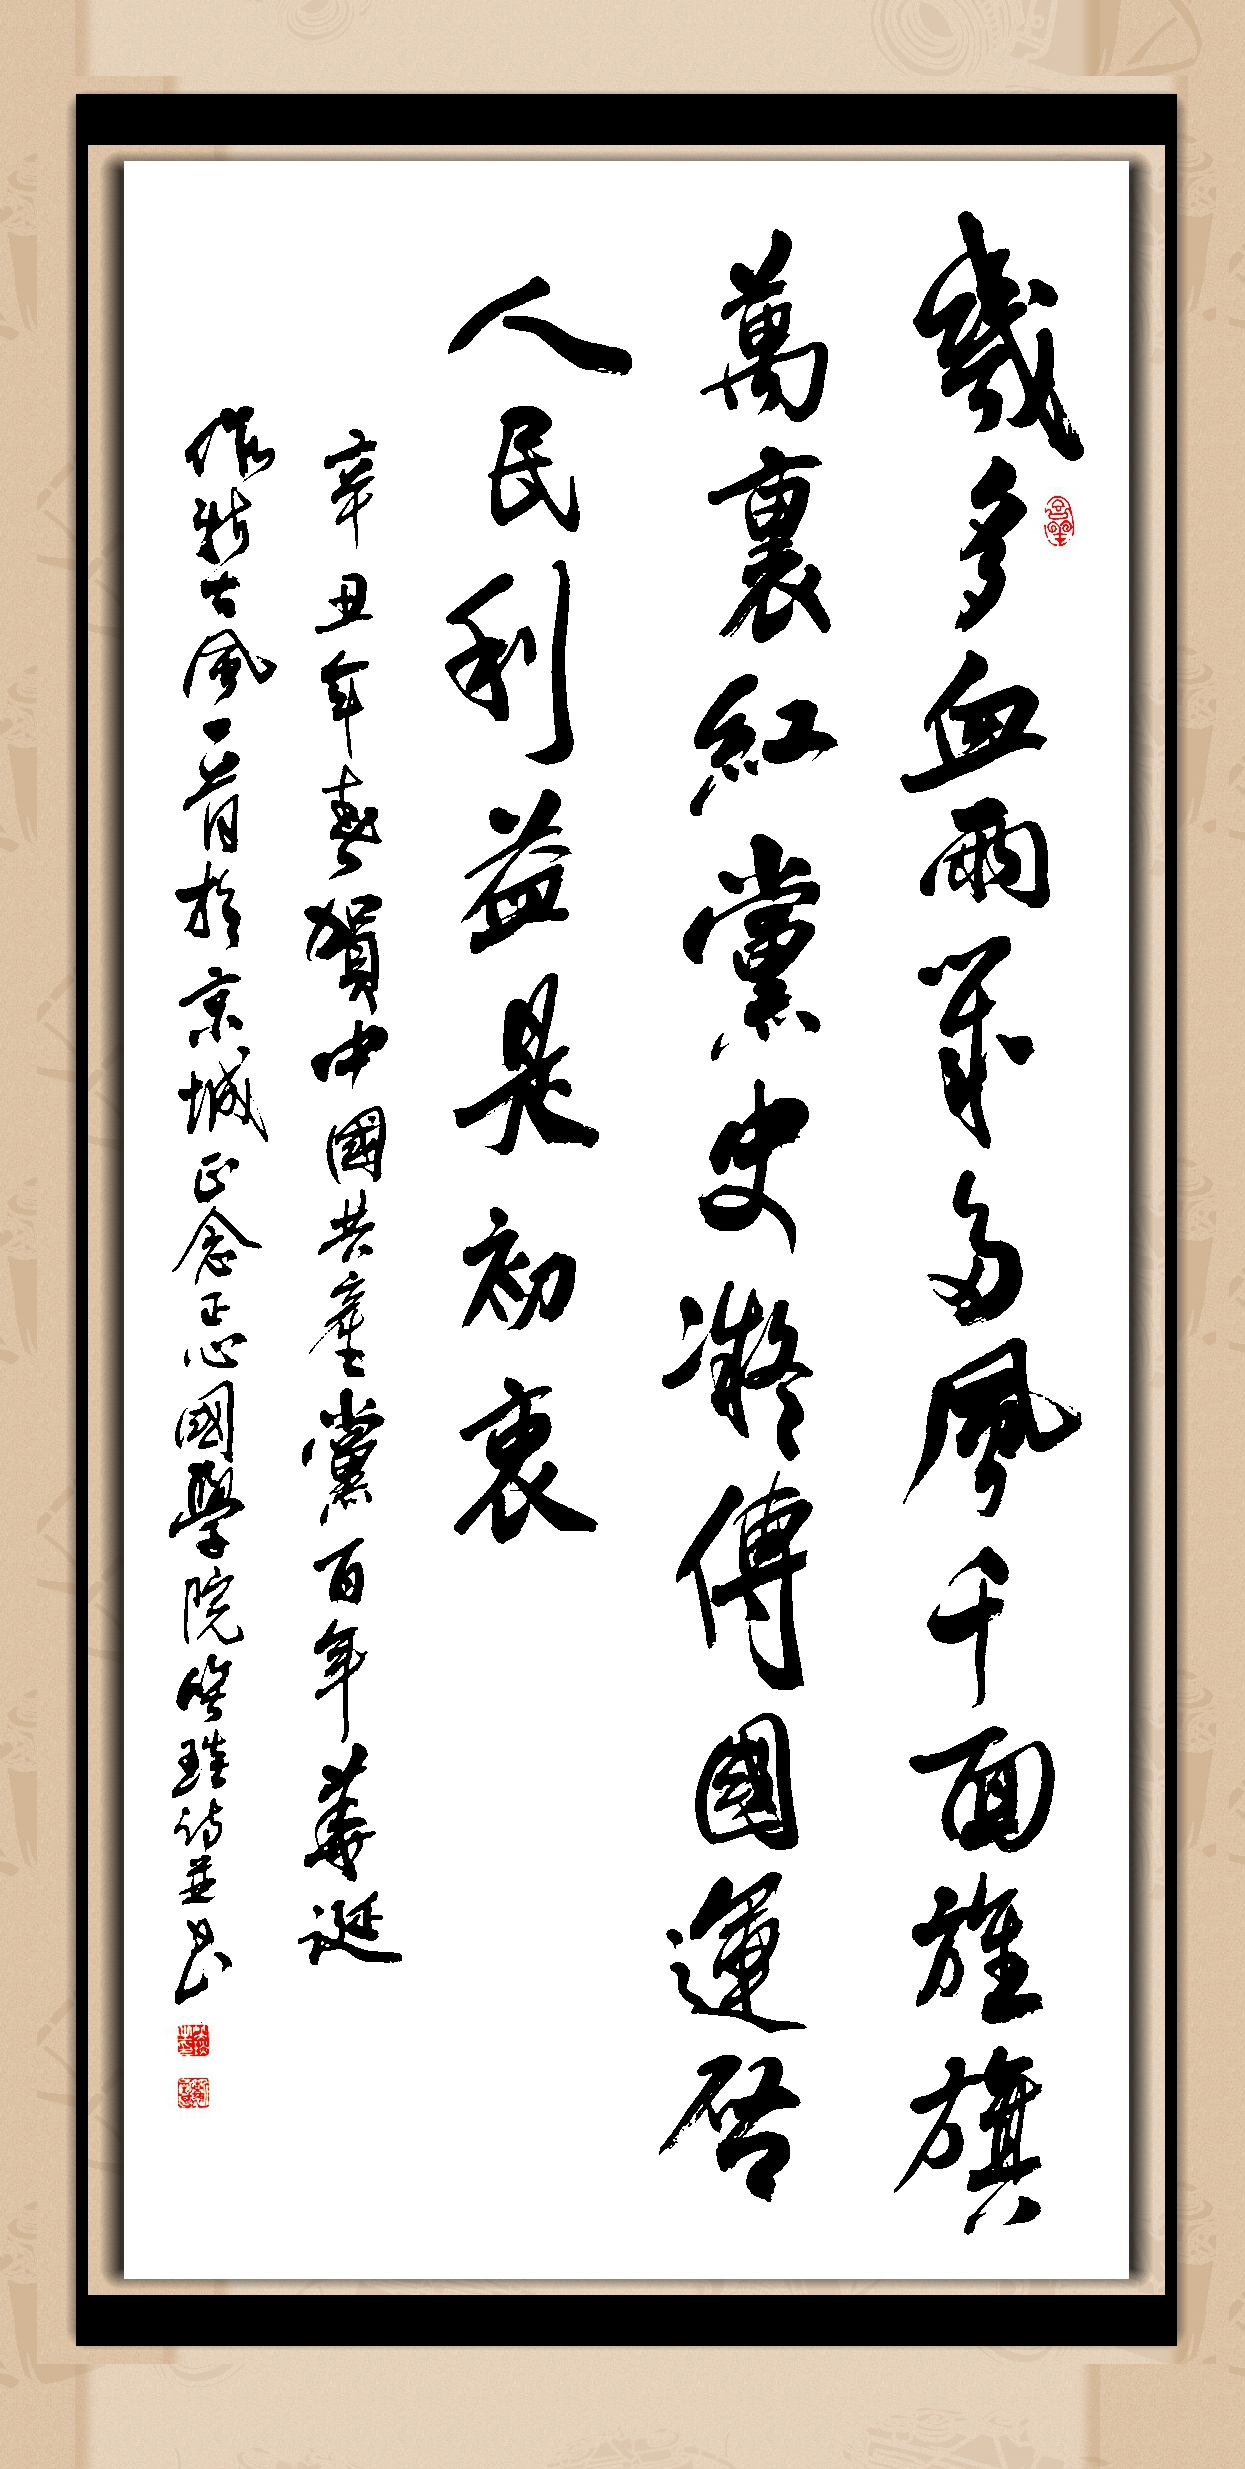 幾多血雨幾多風千面旌旗
萬裏紅黨史凝傳國運啓
人民利益是初衷
辛丑年春賀中國共產黨百年華誕
作新古風一首於京城正念正心國學院 詩並書